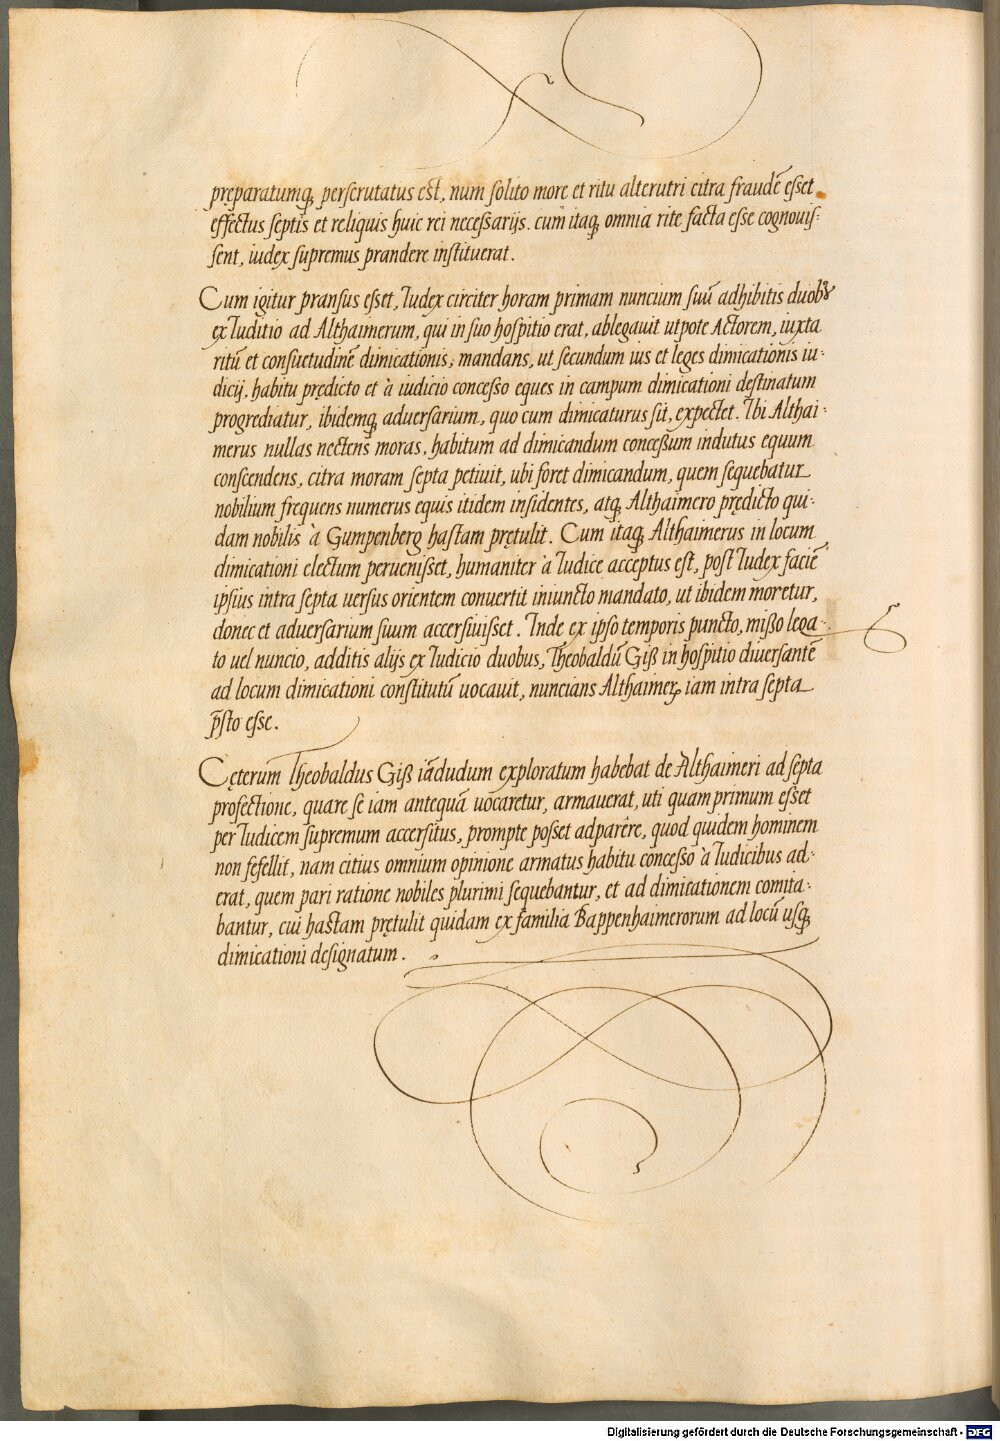 pręparatumq; perscrutatus est, num solito more et ritu alterutri citra fraudē esset
effectus septis et reliquis huic rei necessarijs. cum itaq; omnia rite facta esse cognouis-
sent, iudex supremus prandere instituerat.
Cum igitur pransus esset, Iudex circiter horam primam nuncium suū adhibitis duobꝰ
ex Iuditio ad Althaimerum, qui in suo hospitio erat, ablegauit utpote Actorem, iuxta
ritū et consuetudinē dimicationis; mandans, ut secundum ius et leges dimicationis iu-
dicij, habitu prędicto et à iudicio concesso eques in campum dimicationi destinatum
progrediatur, ibidemq; aduersarium, quo cum dimicaturus sit, expectet. Ibi Althai-
merus nullas nectens moras, habitum ad dimicandum conceßum indutus equum
conscendens, citra moram septa petiuit, ubi foret dimicandum, quem sequebatur
nobilium frequens numerus equis itidem insidentes, atq; Althaimero prędicto qui-
dam nobilis à Gumpenberg hastam prętulit. Cum itaq; Althaimerus in locum
dimicationi electum peruenisset, humaniter à Iudice acceptus est, post Iudex faciē
ipsius intra septa uersus orientem conuertit iniuncto mandato, ut ibidem moretur,
donec et aduersarium suum accersiuisset. Inde ex ipso temporis puncto, mißo lega-
to uel nuncio, additis alijs ex Iudicio duobus, Theobaldū Giß in hospitio diuersantē
ad locum dimicationi constitutū uocauit, nuncians Althaimeꝝ iam intra septa
p̄sto esse.
Cęterum Theobaldus Giß iādudum exploratum habebat de Althaimeri ad septa
profectione, quare se iam antequā uocaretur, armauerat, uti quam primum esset
per Iudicem supremum accersitus, prompte posset adparêre, quod quidem hominem
non fefellit, nam citius omnium opinione armatus habitu concesso à Iudicibus ad-
erat, quem pari ratione nobiles plurimi sequebantur, et ad dimicationem comita-
bantur, cui hastam prętulit quidam ex familia Bappenhaimerorum ad locū usq;
dimicationi designatum.
Digitalisierung gefördert durch die Deutsche Forschungsgemeinschaft - DFG